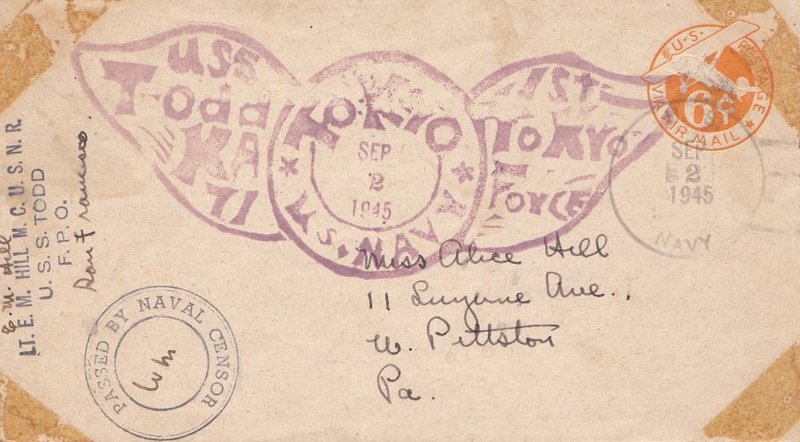 USS
Todd
KA
71
TOKYO
SEP
2
1945
U.S. NAVY
1ST
TOKYO
FORCE
U.S. POSTAGE
6¢
VIA AIR MAIL
SEP
2
1945
NAVY
E. M. Hill
LT. E. M. HILL M. C. U. S. N. R.
U. S. S. TODD
F. P. O.
San Francisco
Miss Alice Hill
11 Luzerne Ave.,
W. Pittston
Pa.
PASSED BY NAVAL CENSOR